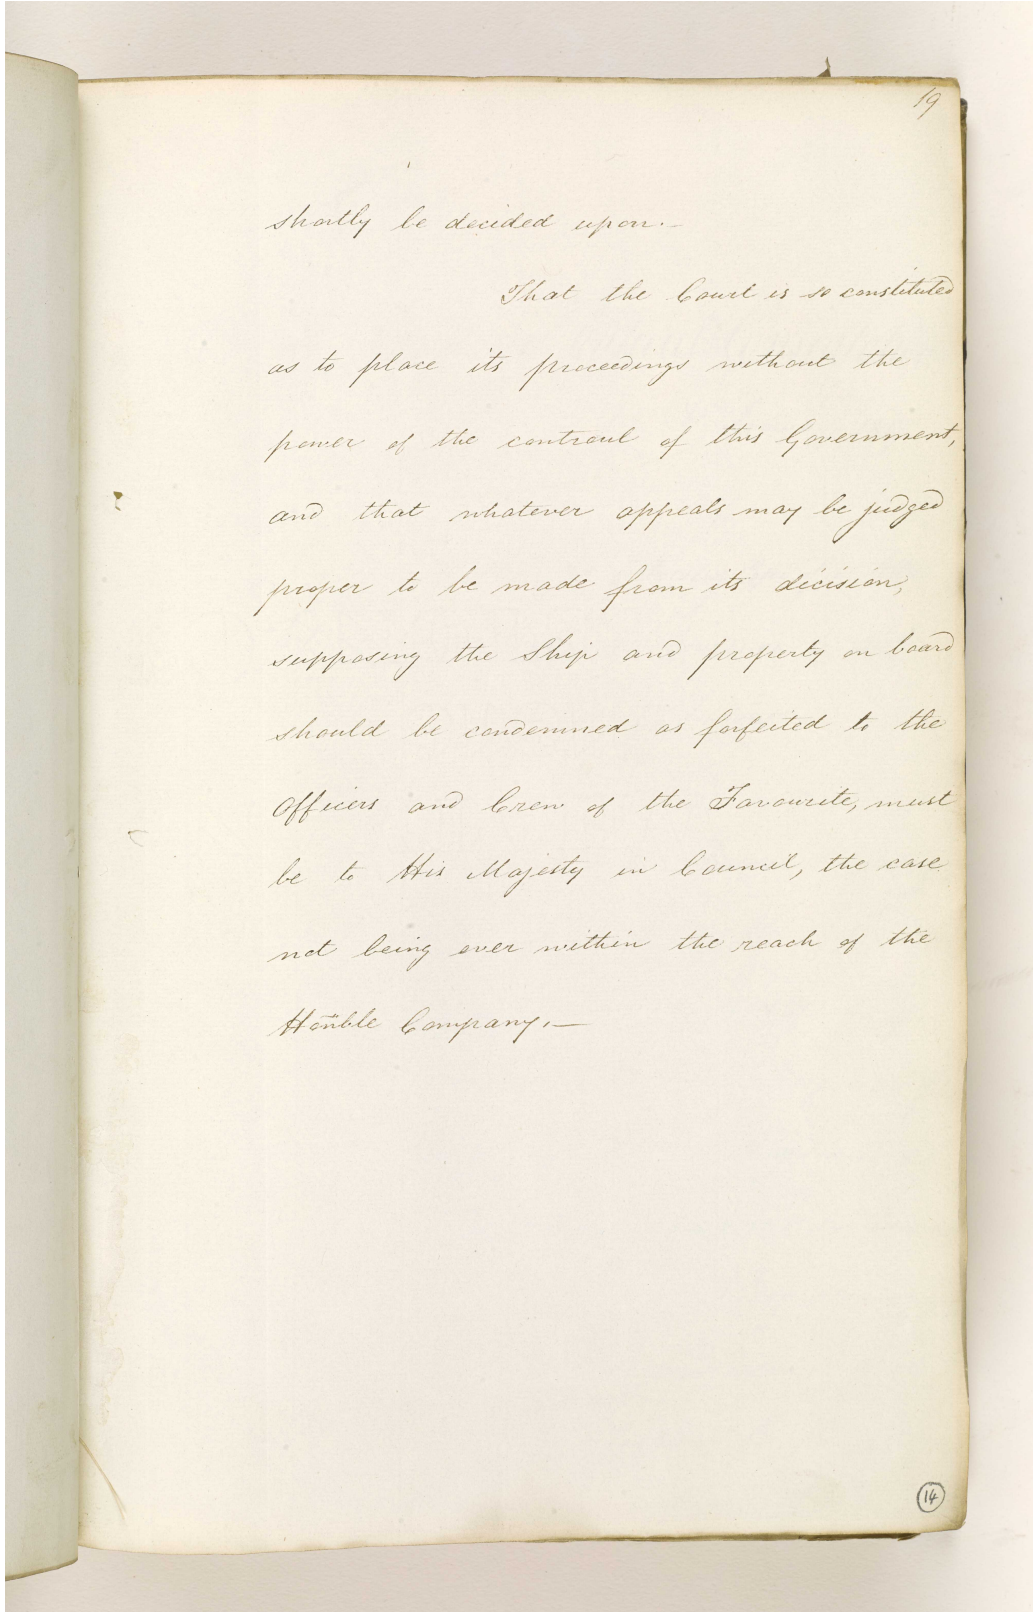 19
shortly be decided upon.—
That the Court is so constituted
as to place its proceedings without the
power of the controul of this Government,
and that whatever appeals may be judged
proper to be made from its décision,
supposing the Ship and property on board
should be condemned as forfeited to the
Officers and Crew of the Favourite, must
be to His Majesty in Council, the case
not being ever within the reach of the
Honble Company.—
14